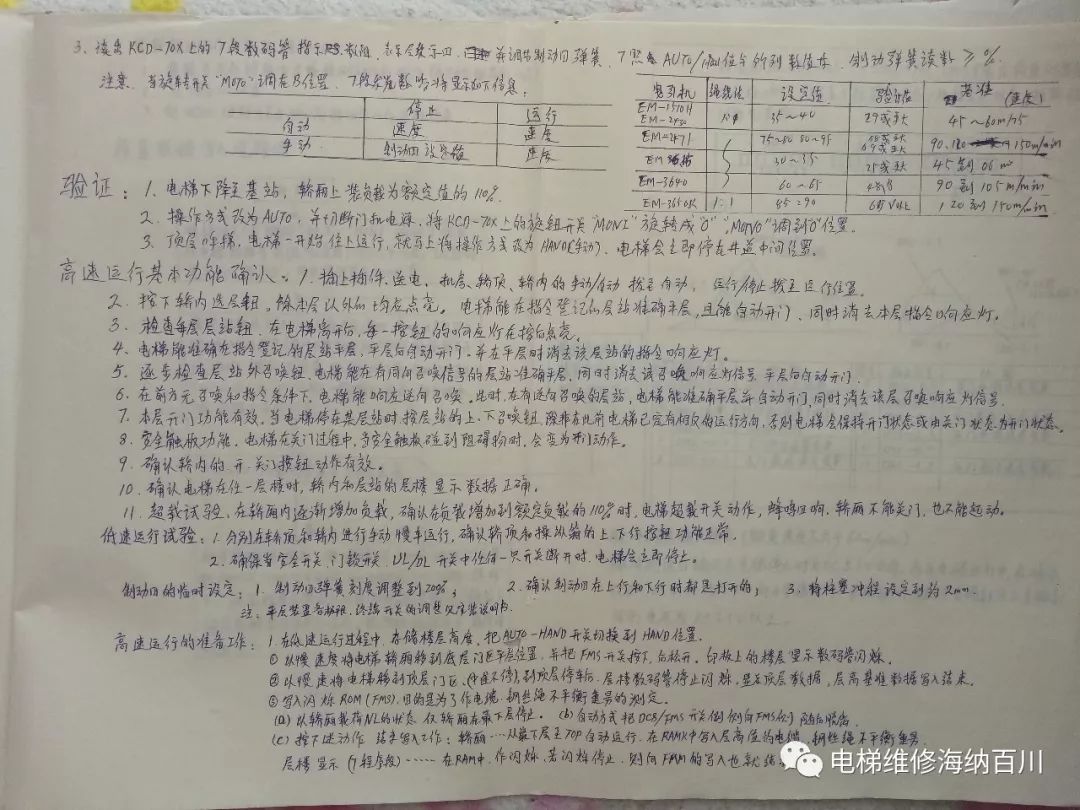 3、读出KCD-70X上的7段数码管指示 数值
注意：当旋转开关"MOTO"调在B位置，7段 将显示如下信息：
停止 运行
自动 速度 速度
手动 制动 设定值 速度
曳引机 绕绳法 设定值 验证值 (速度)
EM-1510H
EM-2430 35~40 29或 45~60m/
EM-2471 75~80 90~95 90. 150m/min
30~35 25或 45到
EM-3640 60~65 90到105m/min
EM-3650K 1:1 85 90 120到150m/min
验证：1. 电梯下降至基站，轿厢上装负载为额定值的110%
2. 操作方式改为AUTO，并切断门机电源，将KCD-70X上的旋钮开关"MON1"旋转成"0"，"MON0"调到"0"位置。
3. 顶层呼梯，电梯一开始往上运行，就马上将操作方式改为HAND(手动)，电梯会立即停在井道中间位置。
高速运行基本功能确认：1. 插上插件，送电，机房、轿顶、轿内的手动/自动 拨至自动，运行/停止拨至运行位置。
2. 按下轿内选层钮。除本层以外的均应点亮。电梯能在指令登记的层站准确平层，且能自动开门，同时消去本层指令响应灯。
3. 检查每层层站钮，在电梯离开后，每一按钮的响应灯在按后点亮。
4. 电梯能准确在指令登记的层站平层，平层后自动开门，并在平层时消去该层站的指令响应灯。
5. 逐步检查层站外召唤钮，电梯能在有同向召唤信号的层站准确平层，同时消去该召唤响应灯信号，平层后自动开门。
6. 在前方无召唤和指令条件下，电梯能响应逆向召唤。此时，在有逆向召唤的层站，电梯能准确平层并自动开门，同时消去该层召唤响应灯信号。
7. 本层开门功能有效。当电梯停在某层站时，按层站的上、下召唤钮，除非在此前电梯已定有相反的运行方向，否则电梯会保持开门状态或由关门状态为开门状态。
8. 安全触板功能，电梯在关门过程中，当安全触板碰到阻碍物时，会变为开门动作。
9. 确认轿内的开、关门按钮动作有效。
10. 确认电梯在任一层楼时，轿内和层站的层楼显示数据正确。
11. 超载试验，在轿厢内逐渐增加负载，确认在负载增加到额定负载的110%时，电梯超载开关动作，蜂鸣回响，轿厢不能关门，也不能起动。
低速运行试验：1. 分别在轿顶和轿内进行手动慢车运行，确认轿顶和操纵箱的上、下行按钮功能正常。
2. 确保当安全开关、门锁开关、UL/DL开关中任何一只开关断开时，电梯会立即停止。
制动 的临时设定：1. 制动 弹簧刻度调整到200%； 2. 确认制动 在上行和下行时都是打开的； 3. 将柱塞冲程设定到约2mm.
注：平层装置 、终端开关的调整 安装说明书.
高速运行的准备工作：1. 在低速运行过程中，存储楼层高度，把AUTO-HAND开关切换到HAND位置.
① 以慢速度将电梯轿厢移到底层门区平层位置，并把FMS开关按下，后松开。印板上的楼层显示数码管闪烁。
② 以慢速将电梯移到顶层门区，(中途不停)，到顶层停车后，层楼数码管停止闪烁，显示顶层数据，层高基准数据写入结束。
③ 写入闪烁ROM(FMS)，目的是为了作电缆、钢丝绳不平衡重另的测定.
(a) 以轿厢载荷NL的状态，使轿厢在最下层停止。 (b) 自动方式把DCB/FMS开关倒向FMS侧 随后脱离.
(c) 按下述动作 结束写入工作：轿厢……从最下层至TOP自动运行，在RAM中写入层高位的电缆、钢丝绳不平衡重另.
层楼显示 ……在RAM中，作闪烁，若闪烁停止，则向 的写入也就结
电梯维修海纳百川